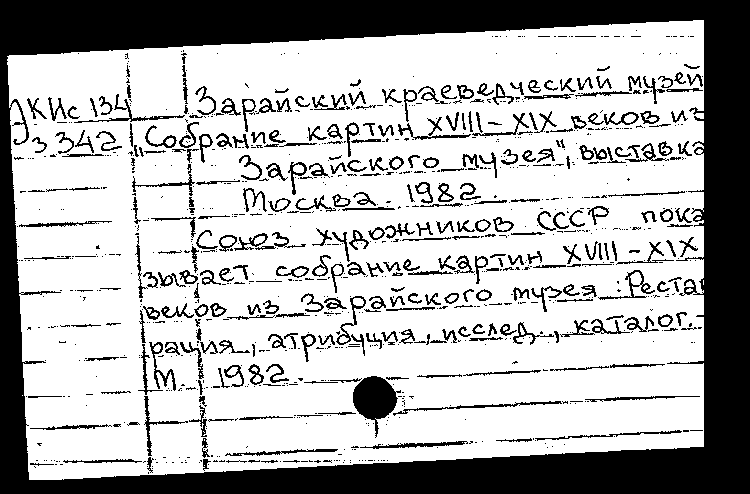 КИс 134 Зарайский краеведческий музей
З 342 „Собрание картин XVIII – XIX веков из
Зарайского музея", выставка
Москва. 1982.
Союз художников СССР пока
зывает собрание картин XVIII – XIX
веков из Зарайского музея : Рестав
рация, атрибуция, исслед., каталог. –
М. 1982.